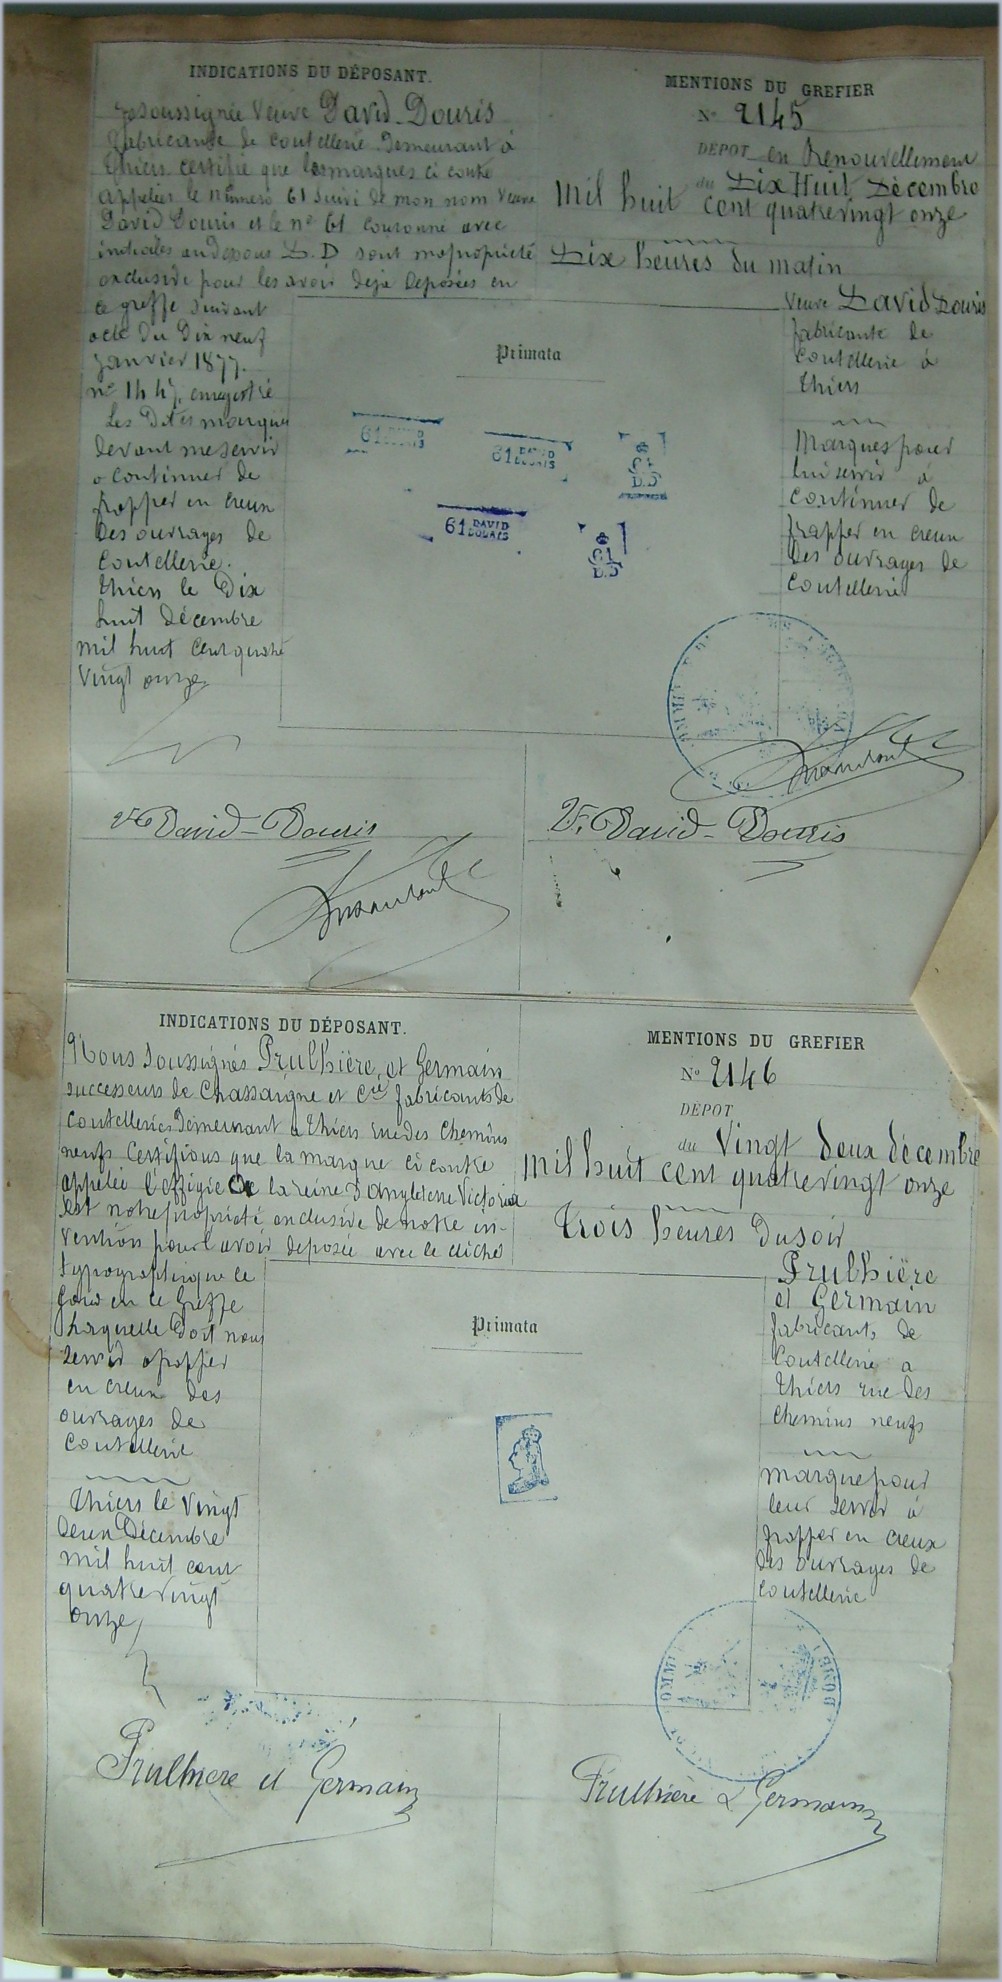 INDICATIONS DU DÉPOSANT.
Je soussignée Veuve David-Douris
fabricante de coutellerie Demeurant à
Thiers certifie que les marques ci contre
appelées le numero 61 suivi de mon nom Veuve
David Douris et le n° 61 couronné avec
initiales au dessous D.D sont ma propriété
exclusive pour les avoir déjà déposées en
ce greffe suivant
acte du Dix neuf
Janvier 1877.
enregistré
Les Dites marques
devant me servir
a continuer de
frapper en creux
des ouvrages de
coutellerie.
Thiers le Dix
huit Décembre
mil huit cent quatre
vingt onze.
MENTIONS DU GREFIER
N° 2145
DÉPOT en Renouvellement
du Dix Huit Décembre
Mil huit cent quatrevingt onze
Dix heures du matin
Veuve David Douris
fabricante de
coutellerie à
Thiers
Marques pour
lui servir à
continuer de
frapper en creux
des ouvrages de
coutellerie
Primata
61 DAVID
61 DAVID
DOURIS
61
D.D
61 DAVID
DOURIS
61
D.D
Ve David-Douris
Ve David-Douris
INDICATIONS DU DÉPOSANT.
Nous soussignés Prulhière et Germain
successeurs de Chassaigne et Cie fabricants de
coutelleries Demeurant a Thiers rue des chemins
neufs Certifions que la marque ci contre
appelée l'effigie de la reine d'angleterre Victoria
est notre propriété exclusive de notre in-
vention pour l'avoir déposée avec le cliché
typographique ce
jour en ce Greffe
Laquelle Doit nous
servir a frapper
en creux des
ouvrages de
coutellerie
Thiers le Vingt
deux Décembre
mil huit cent
quatrevingt
onze
MENTIONS DU GREFIER
N° 2146
DÉPOT
du Vingt deux décembre
mil huit cent quatrevingt onze
Trois heures du soir
Prulhière
et Germain
fabricants de
Coutellerie a
Thiers rue des
chemins neufs
marque pour
leur servir à
frapper en creux
des ouvrages de
coutellerie
Primata
Prulhière et Germain
Prulhière & Germain